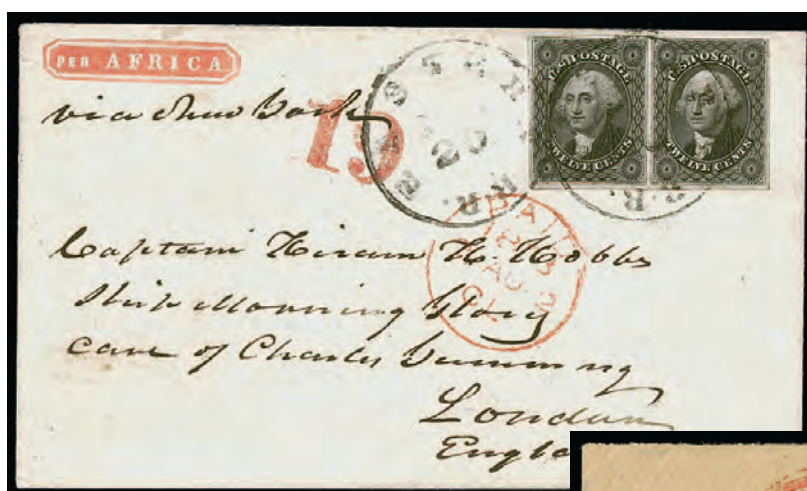 PER AFRICA
via New York
19
EASTERN R.R.
20
U.S. POSTAGE
TWELVE CENTS
U.S. POSTAGE
TWELVE CENTS
R.R.
PAID
AU
Captain Hiram H. Hobbs
Ship Morning Glory
care of Charles
London
Engla